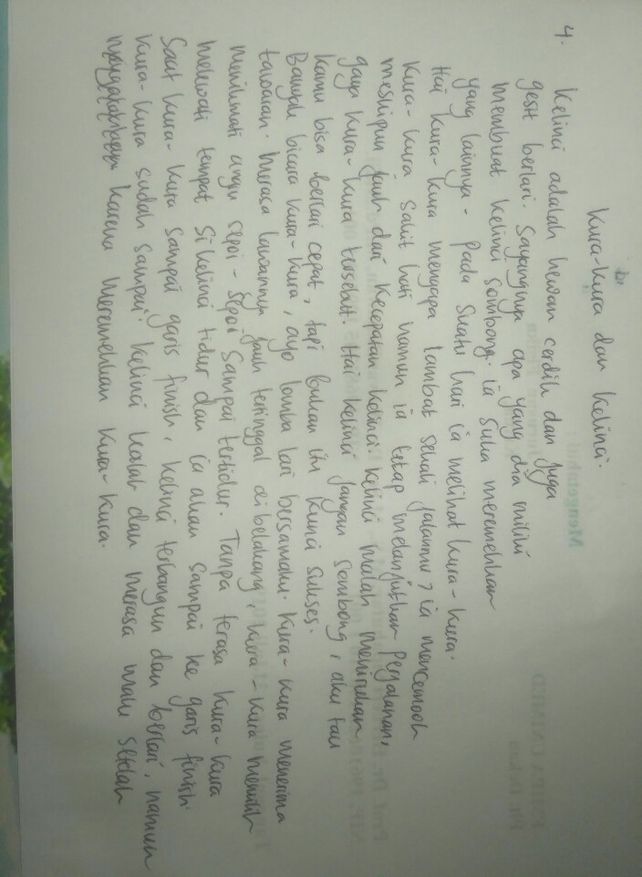 Kura-kura dan Kelinci.
4.
Kelinci adalah hewan cerdik dan juga
gesit berlari. Sayangnya apa yang dia miliki
membuat kelinci sombong. ia suka meremehkan
yang lainnya. pada suatu hari ia melihat kura-kura.
Hai kura-kura mengapa lambat sekali jalanmu? ia mencemooh
kura-kura sakit hati namun ia tetap melanjutkan Perjalanan,
meskipun jauh dari kecepatan kelinci. kelinci malah menirukan
gaya kura-kura tersebut. Hai kelinci jangan sombong, aku tau
kamu bisa berlari cepat, tapi bukan itu kunci sukses.
Banyak bicara kura-kura, ayo lomba lari bersamaku. kura-kura menerima
tawaran. Merasa lawannya jauh tertinggal di belakang, kura-kura memilih
menikmati angin sepoi-sepoi sampai tertidur. Tanpa terasa kura-kura
melewati tempat si kelinci tidur dan ia akan sampai ke garis finish.
Saat kura-kura sampai garis finish, kelinci terbangun dan berlari, namun
kura-kura sudah sampai. kelinci kalah dan merasa malu setelah
karena meremehkan kura-kura.